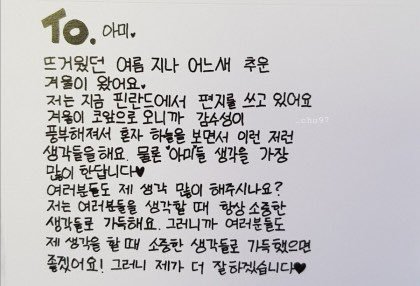 To. 아미♥
뜨거웠던 여름 지나 어느새 추운
겨울이 왔어요♥
저는 지금 핀란드에서 편지를 쓰고 있어요
겨울이 코앞으로 오니까 감수성이
풍부해져서 혼자 하늘을 보면서 이런 저런
생각들을해요. 물론 "아미"들 생각을 가장
많이 한답니다♥
여러분들도 제 생각 많이 해주시나요?
저는 여러분들을 생각할 때 항상 소중한
생각들로 가득해요. 그러니까 여러분들도
제 생각을 할 때 소중한 생각들로 가득했으면
좋겠어요! 그러니 제가 더 잘하겠습니다♥